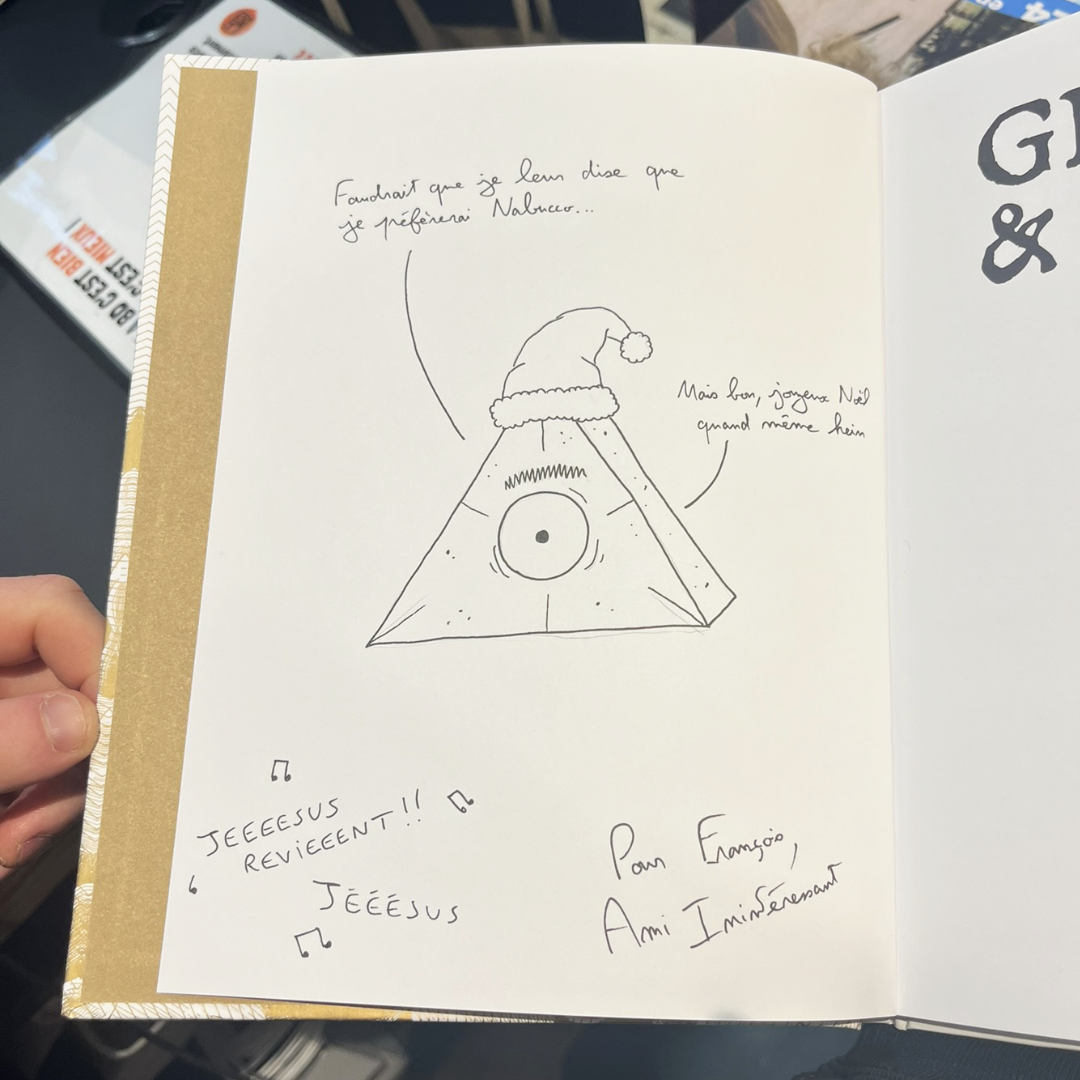 Faudrait que je leur dise que
je préfèrerai Nabucco...
Mais bon, joyeux Noël
quand même hein
JEEEESUS
REVIEEENT!!
JÉÉÉSUS
Pour François,
Ami Inintéressant
G
&
LA BD C'EST BIEN
C'EST MIEUX!
24